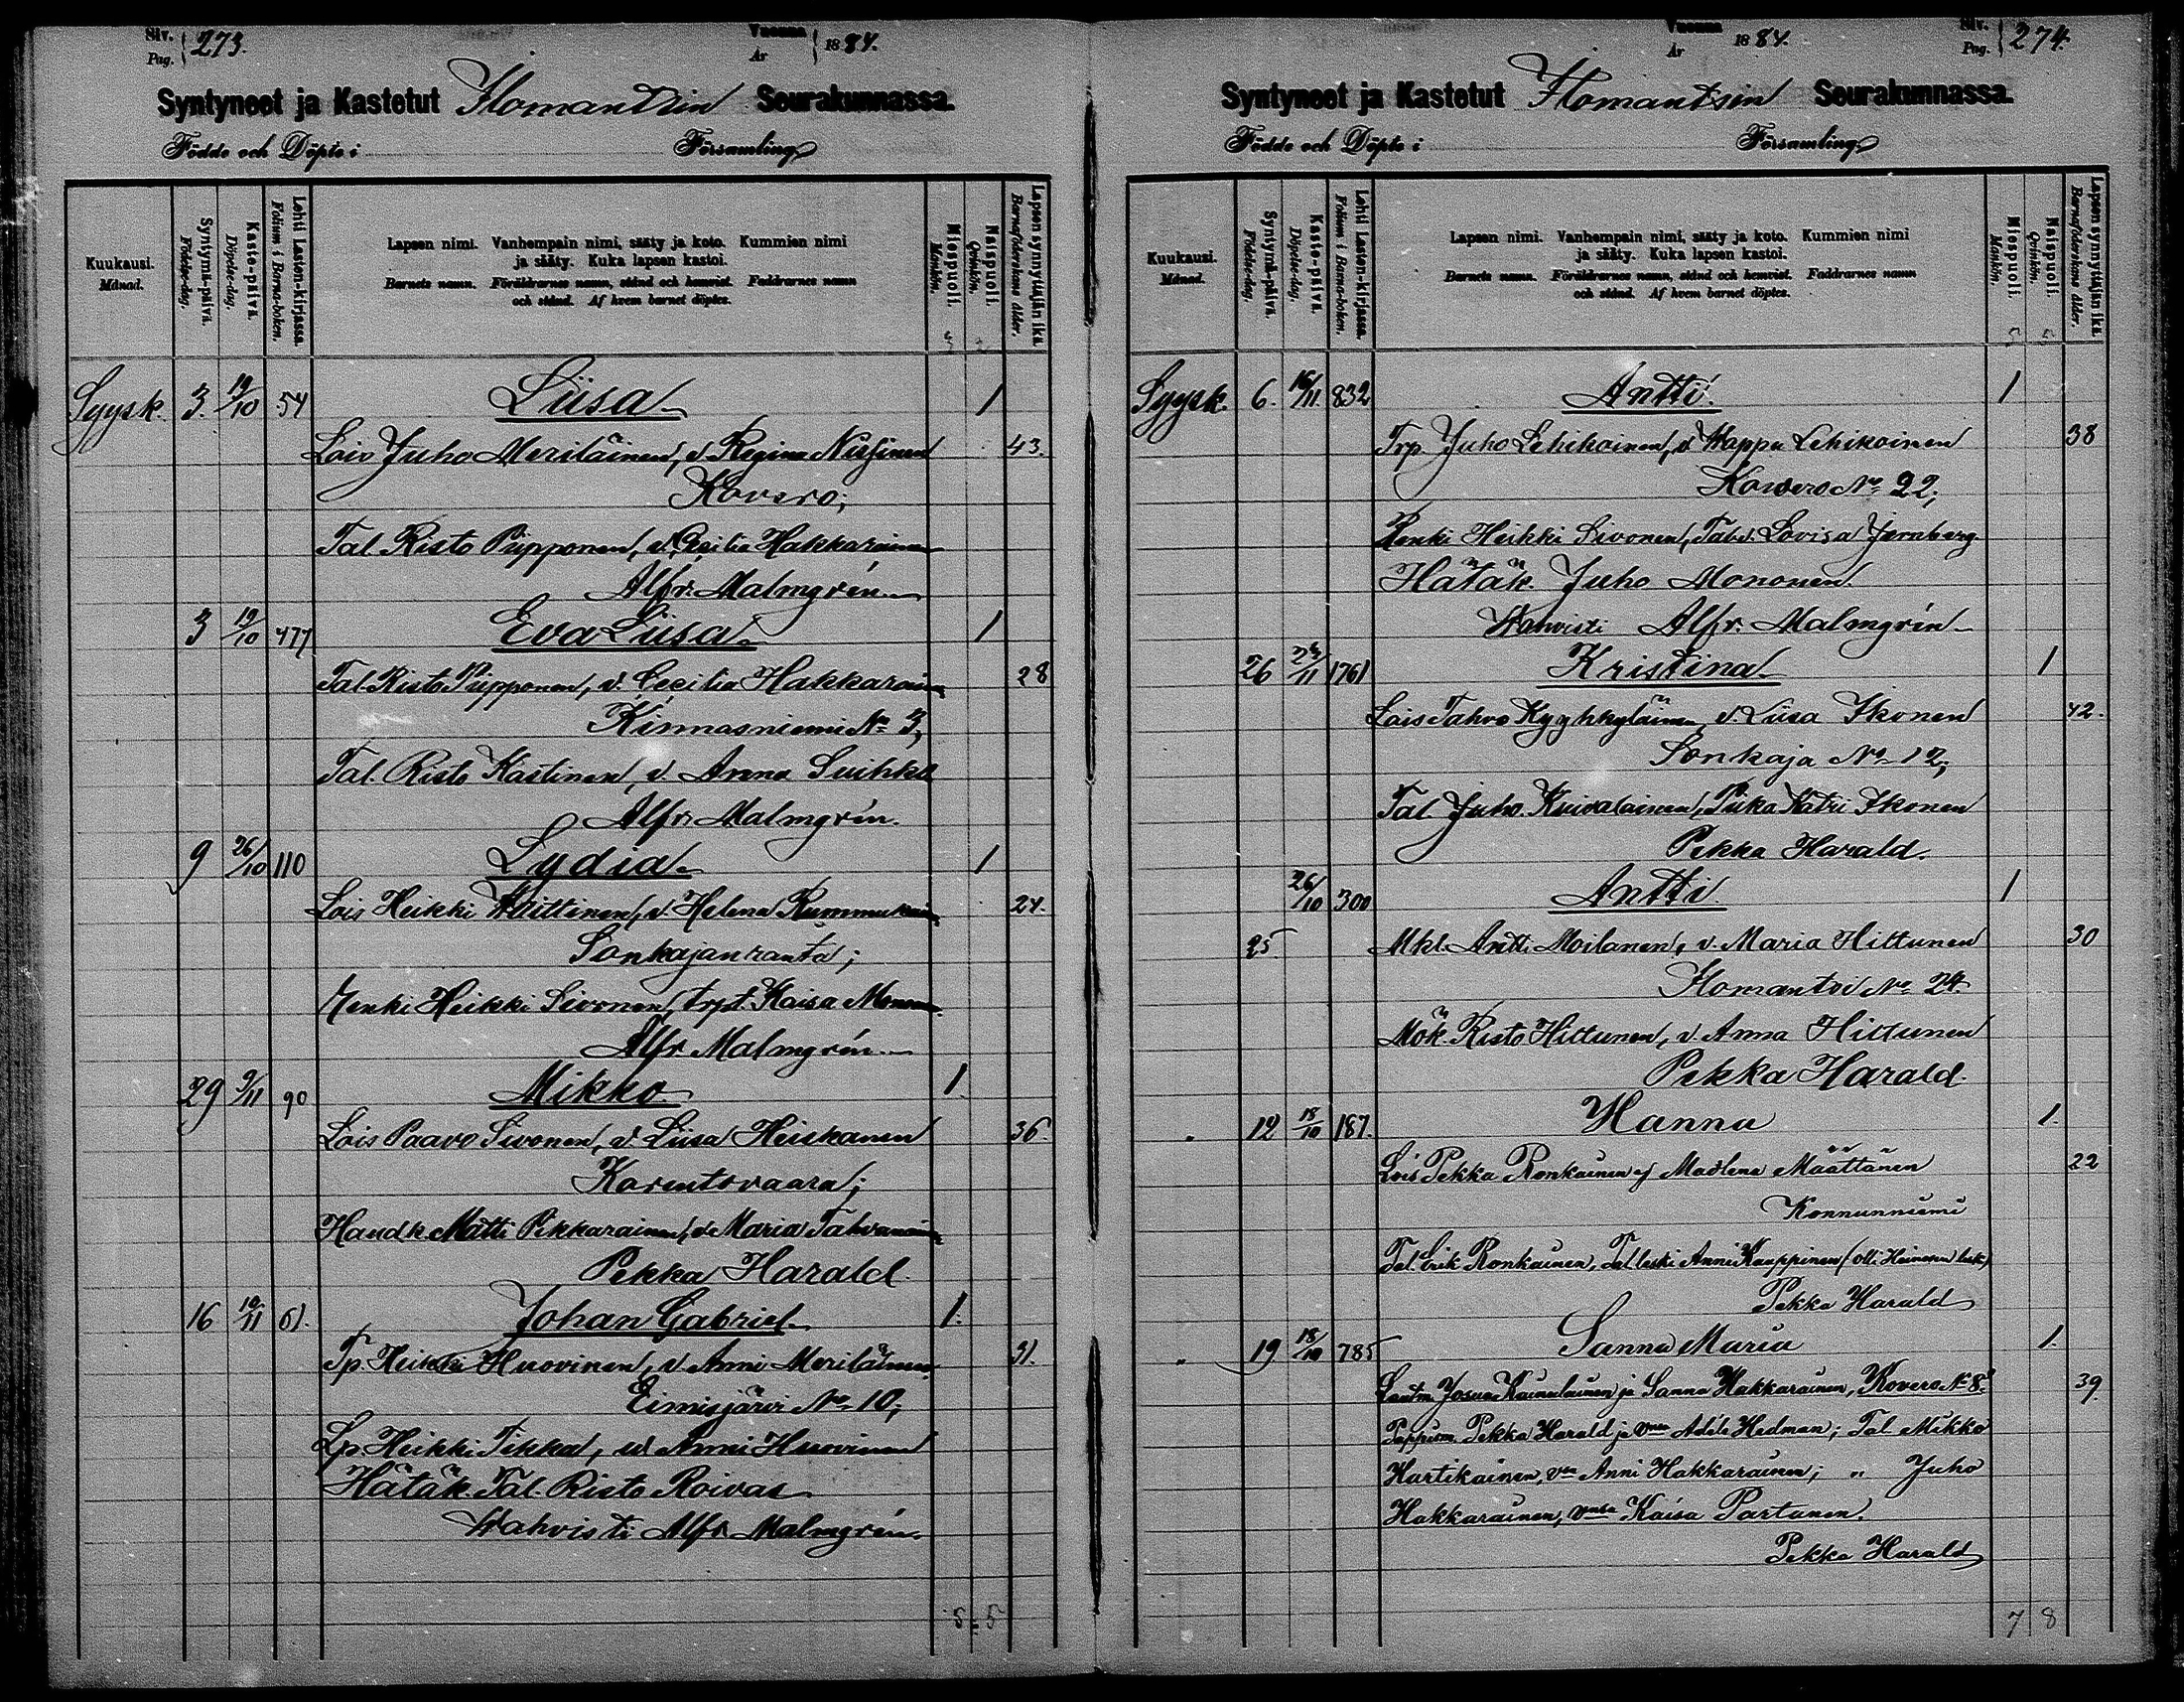 Siv. Pag. 273.
Vuonna År 1884.
Syntyneet ja Kastetut Ilomantsin Seurakunnassa.
Födde och Döpte i Församling
Kuukausi. Månad.
Syntymä-päivä. Födelse-dag.
Kaste-päivä. Döpelse-dag.
Lehti Lasten-kirjassa. Folium i Barna-boken.
Lapsen nimi. Vanhempain nimi, sääty ja koto. Kummien nimi
ja sääty. Kuka lapsen kastoi.
Barnets namn. Föräldrarnes namn, stånd och hemvist. Faddrarnes namn
och stånd. Af hvem barnet döptes.
Miespuoli. Mankön.
Naispuoli. Qvinkön.
Lapsen synnyttäjän ikä. Barnaföderskans ålder.
3 2
Syysk. 3. 19/10 54 Liisa 1
Lois Juho Meriläinen, v. Regina Nissinen 43.
Kovero;
Tal. Risto Piipponen, v. Cecilia Hakkarainen
Alfr. Malmgrén
3 19/10 477 Eva Liisa 1
Tal. Risto Piipponen, v. Cecilia Hakkarainen 28
Kinnasniemi No 3,
Tal. Risto Kastinen, v. Anna Suihko
Alfr. Malmgrén.
9 26/10 110 Lydia 1
Lois Heikki Waittinen, v. Helena Rummukainen 24.
Sonkajanranta;
Renki Heikki Sivonen, trpt. Kaisa Mononen
Alfr. Malmgrén
29 9/11 90 Mikko 1.
Lois Paavo Sivonen, v. Liisa Heiskanen 36.
Korentovaara;
Haudk. Matti Pikkarainen, v. Maria Tahvanainen
Pekka Harald.
16 10/11 61. Johan Gabriel 1.
Tp. Heikki Huovinen, v. Anni Meriläinen 31.
Eimisjärvi No 10;
Lp. Heikki Tikka, v. Anni Huovinen
Hätäk. Tal. Risto Roivas
Wahvisti Alfr. Malmgrén.
5 5
Siv. Pag. 274.
Vuonna År 1884.
Syntyneet ja Kastetut Ilomantsin Seurakunnassa.
Födde och Döpte i Församling
Kuukausi. Månad.
Syntymä-päivä. Födelse-dag.
Kaste-päivä. Döpelse-dag.
Lehti Lasten-kirjassa. Folium i Barna-boken.
Lapsen nimi. Vanhempain nimi, sääty ja koto. Kummien nimi
ja sääty. Kuka lapsen kastoi.
Barnets namn. Föräldrarnes namn, stånd och hemvist. Faddrarnes namn
och stånd. Af hvem barnet döptes.
Miespuoli. Mankön.
Naispuoli. Qvinkön.
Lapsen synnyttäjän ikä. Barnaföderskans ålder.
5 5
Syysk. 6. 16/11 832 Antti. 1
Trp. Juho Lehikoinen, v Wappu Lehikoinen 38
Kowero No 22;
Renki Heikki Sivonen, Tal.v. Lovisa Jernberg
Hätäk. Juho Mononen.
Wahvisti Alfr. Malmgrén
26 23/11 1761 Kristina 1
Lois Tahvo Kyyhkyläinen, v. Liisa Ikonen 42.
Sonkaja No 12;
Tal. Juho Kuivalainen, Piika Katri Ikonen
Pekka Harald.
26/10 300 Antti. 1
25 Mkl. Antti Moilanen, v. Maria Hiltunen 30
Ilomantsi No 24.
Mök. Risto Hiltunen, v. Anna Hiltunen
Pekka Harald.
" 12 18/10 187. Hanna 1.
Lois Pekka Ronkainen, Madlena Määttänen 22
Konnunniemi
Tal. Erik Ronkainen, Tal. leski Anni Kauppinen (Olli Heinosen lesk)
Pekka Harald
" 19 18/10 785 Sanna Maria 1.
Lautm. Josua Kainulainen ja Sanna Hakkarainen, Kovero No 8. 39.
Pappism. Pekka Harald ja vmo Adéle Hedman; Tal Mikko
Hartikainen, vmo Anni Hakkarainen; " Juho
Hakkarainen, vmo Kaisa Partanen.
Pekka Harald
7 8